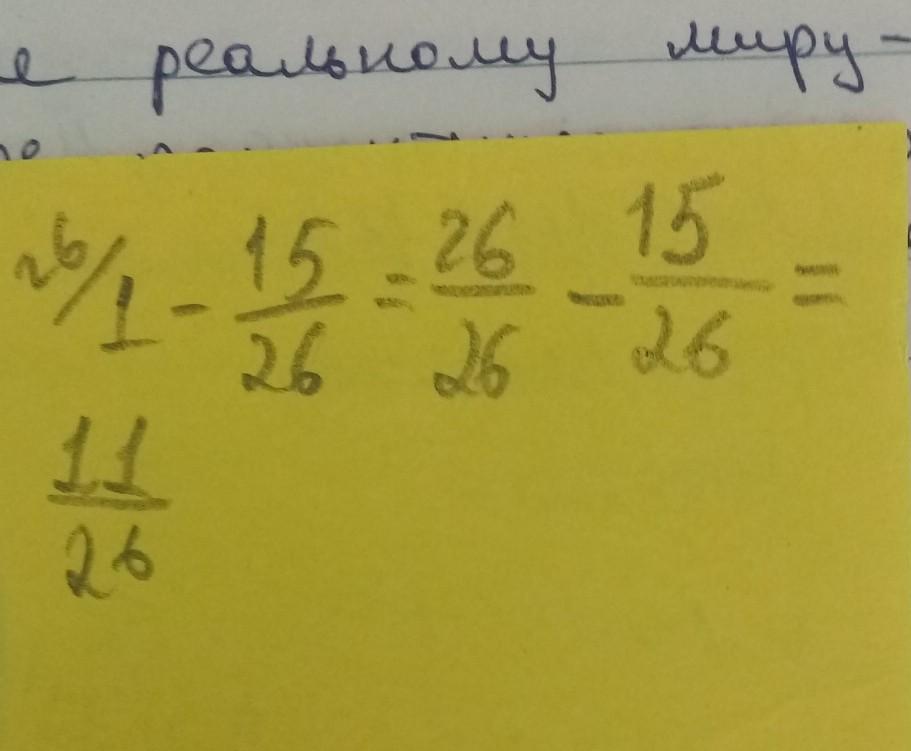 е реальному миру-
26/1 - 15/26 = 26/26 - 15/26 =
11/26